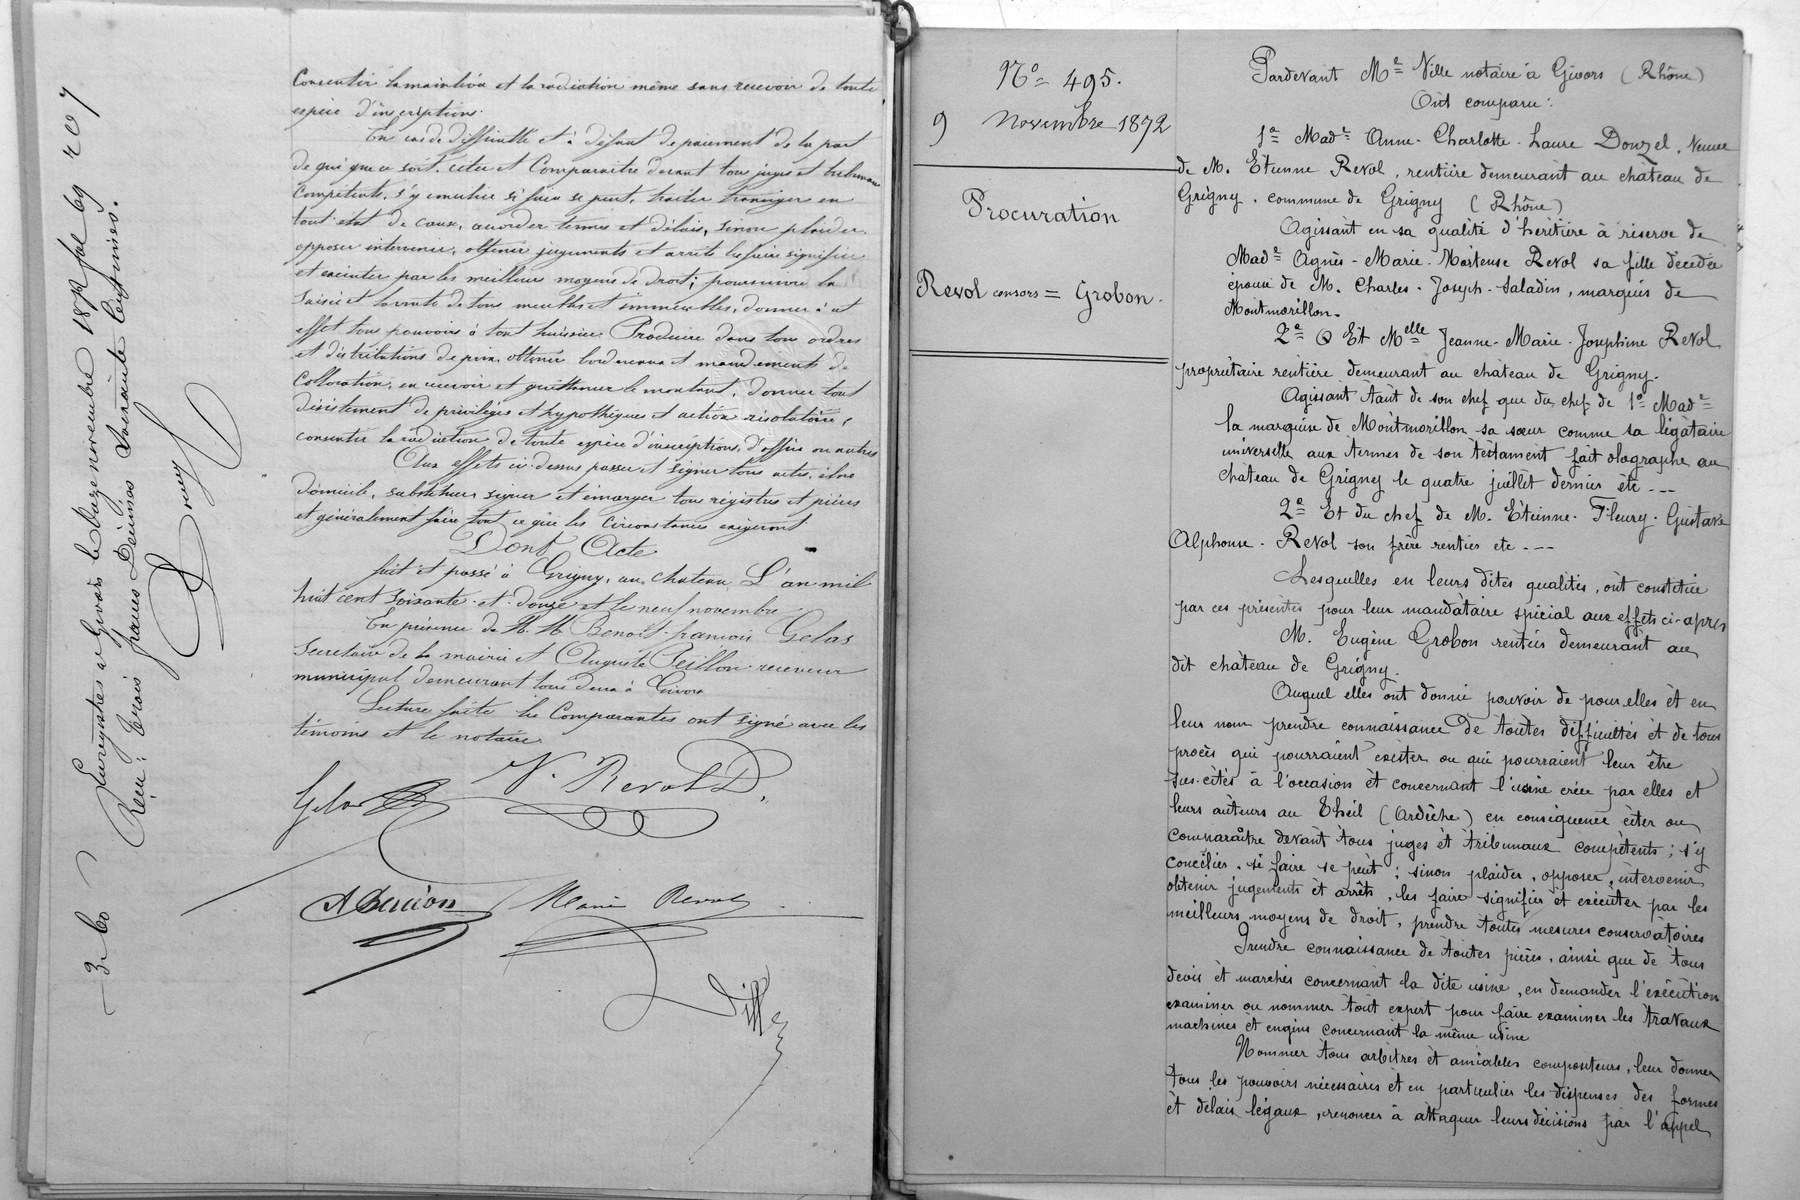 Consentir la mainlevée et la radiation même sans recevoir de toute
espèce d'inscriptions.
En cas de difficulté et à défaut de paiement de la part
de qui que ce soit, citer et Comparaître devant tous juges et tribunaux
Compétents, s'y concilier si faire se peut, traiter transiger en
tout état de cause, accorder termes et délais, sinon plaider,
opposer intervenir, obtenir jugements et arrêts les faire signifier
et exécuter par les meilleurs moyens de droit; poursuivre la
saisie et la vente de tous meubles et immeubles, donner à cet
effet tous pouvoirs à tout huissier Produire dans tous ordres
et distributions de prix, obtenir bordereaux et mandements de
Collocation, en recevoir et quittancer le montant, donner tout
désistement de privilèges et hypothèques et action résolutoire,
consentir la radiation de toute espèce d'inscriptions, d'office ou autres
Aux effets ci-dessus passer et signer tous actes, élire
domicile, substituer, signer et émarger tous régistres et pièces
et généralement faire tout ce que les Circonstances exigeront
Dont Acte
fait et passé à Grigny, au Chateau L'an mil
huit cent soixante-et-douze et le neuf novembre
En présence de M. M. Benoit-françois Gelas
Secrétaire de la mairie et Auguste Peillon receveur
municipal demeurant tous deux à Givors
Lecture faite les Comparantes ont signé avec les
témoins et le notaire
Gelas V. Revol D.
Marie Revol
Ville
Enregistré à Givors le onze novembre 1872 fol 69 r c 7
Reçu: trois francs Décimes Soixante centimes.
3-60
N° 495.
9 Novembre 1872
Procuration
Revol consors = Grobon.
Pardevant Me Ville notaire à Givors (Rhône)
Ont comparu:
1° Made Anne-Charlotte-Laure Donzel, Veuve
de M. Etienne Revol, rentière demeurant au château de
Grigny, commune de Grigny (Rhône)
Agissant en sa qualité d'héritière à réserve de
Made Agnès-Marie-Hortense Revol sa fille décédée
épouse de M. Charles-Joseph-Saladin, marquis de
Montmorillon.
2° Et Melle Jeanne-Marie-Joséphine Revol
propriétaire rentière demeurant au château de Grigny.
Agissant tant de son chef que du chef de 1° Made
la marquise de Montmorillon sa sœur comme sa légataire
universelle aux termes de son testament fait olographe au
château de Grigny le quatre juillet dernier etc ---
2° Et du chef de M. Etienne-Fleury-Gustave
Alphonse-Revol son frère rentier etc ---
Lesquelles en leurs dites qualités, ont constitué
par ces présentes pour leur mandataire spécial aux effets ci-après
M. Eugène Grobon rentier demeurant au
dit château de Grigny.
Auquel elles ont donné pouvoir de pour elles et en
leur nom prendre connaissance de toutes difficultés et de tous
procès qui pourraient exister ou qui pourraient leur être
suscités à l'occasion et concernant l'usine créée par elles et
leurs auteurs au Theil (Ardèche) en conséquence citer ou
comparaître devant tous juges et tribunaux compétents; s'y
concilier, si faire se peut; sinon plaider, opposer, intervenir
obtenir jugements et arrêts, les faire signifier et exécuter par les
meilleurs moyens de droit, prendre toutes mesures conservatoires
Prendre connaissance de toutes pièces, ainsi que de tous
devis et marchés concernant la dite usine, en demander l'exécution
examiner ou nommer tout expert pour faire examiner les travaux
machines et engins concernant la même usine
Nommer tous arbitres et amiables compositeurs, leur donner
tous les pouvoirs nécessaires et en particulier les dispenses des formes
et délais légaux, renoncer à attaquer leurs décisions par l'appel